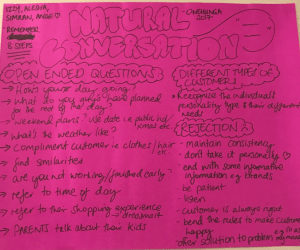 IZZY, ALESHA,
SIMRAN, ANGE
REMEMBER
8 STEPS
ONEHUNGA
2017
NATURAL
CONVERSATION
OPEN ENDED QUESTIONS
→ How's your day going
→ What do you guys have planned
for the rest of the day?
→ Weekend plans? use date i.e public hol/
school etc
→ What's the weather like?
→ Compliment customer ie clothes/hair
etc
→ find similarities
→ are you not working/finished early
→ refer to time of day
→ refer to their shopping experience
→ PARENTS talk about their kids
DIFFERENT TYPES OF
CUSTOMERS
Recognise the individuals
personality type & their different
needs
REJECTION
- maintain consistency
- don't take it personally
- end with some informative
information eg brands
- be patient
- listen
- customer is always right
- bend the rules to make customer
happy
- offer solution to problem